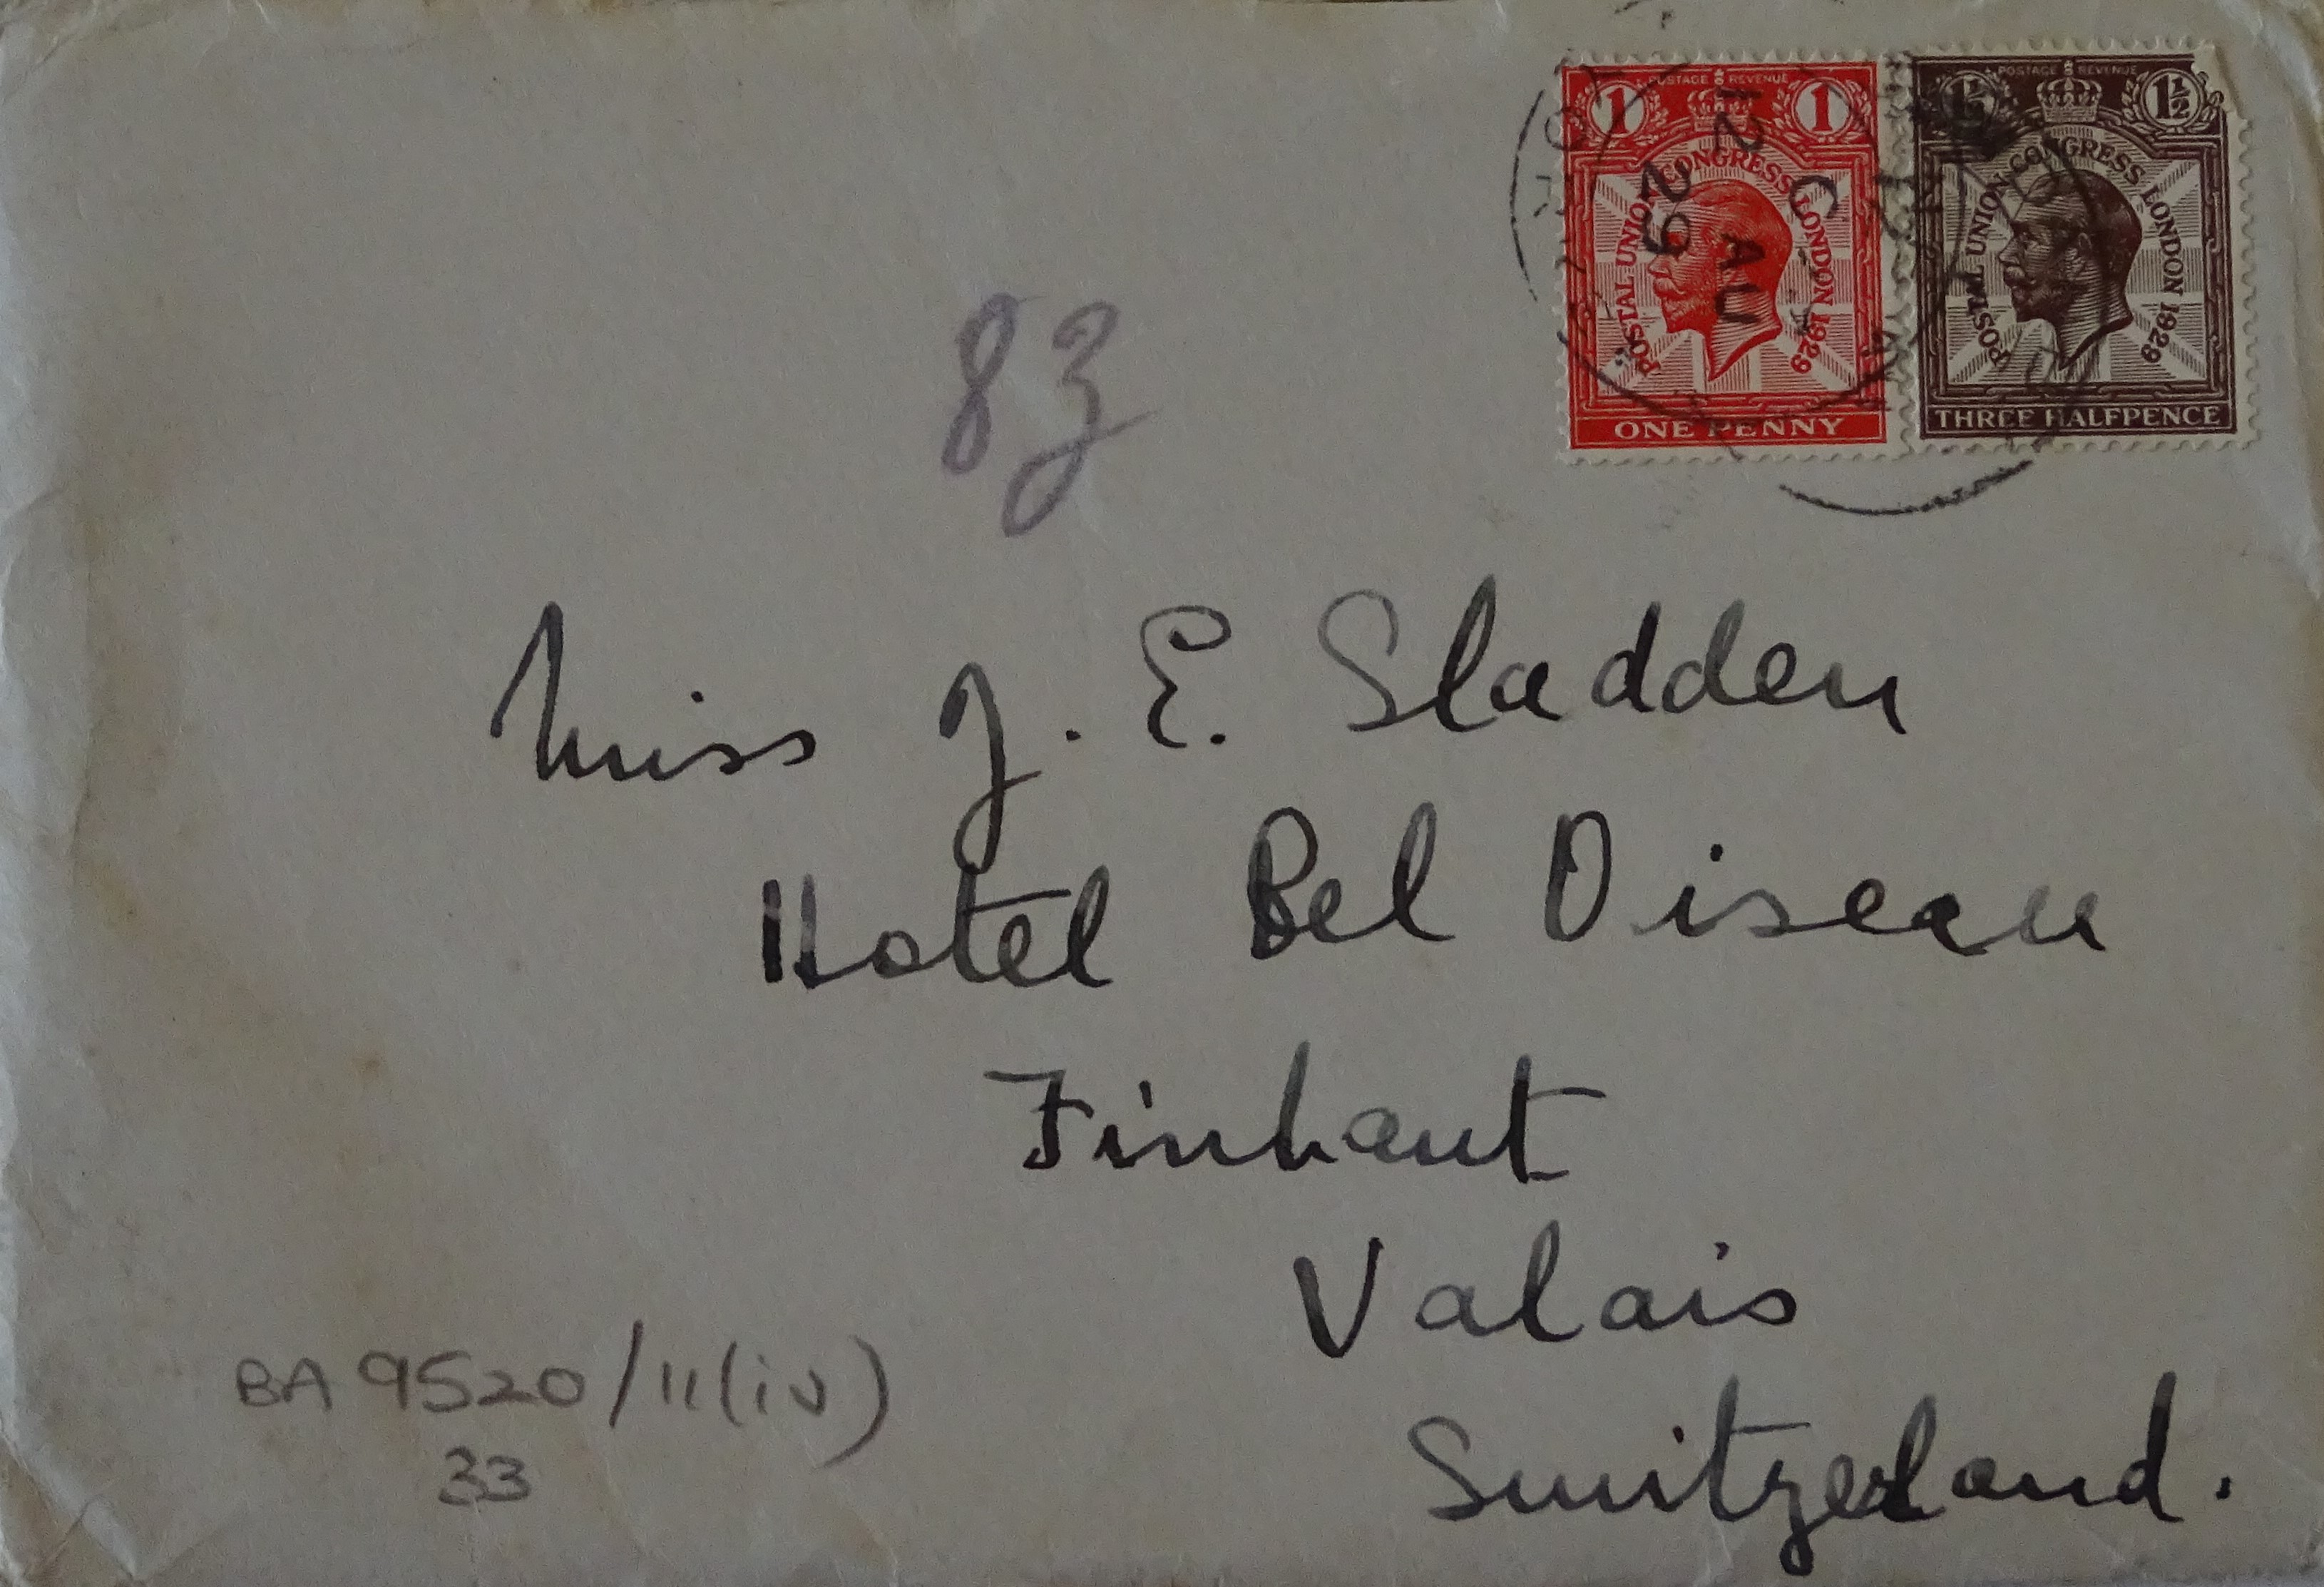 POSTAGE REVENUE
1 1
POSTAL UNION CONGRESS LONDON 1929
ONE PENNY
POSTAGE REVENUE
1½ 1½
POSTAL UNION CONGRESS LONDON 1929
THREE HALFPENCE
12 AU
29
83
Miss J. E. Sladden
Hotel Bel Oiseau
Finhaut
Valais
Switzerland.
BA 9520/11(iv)
33